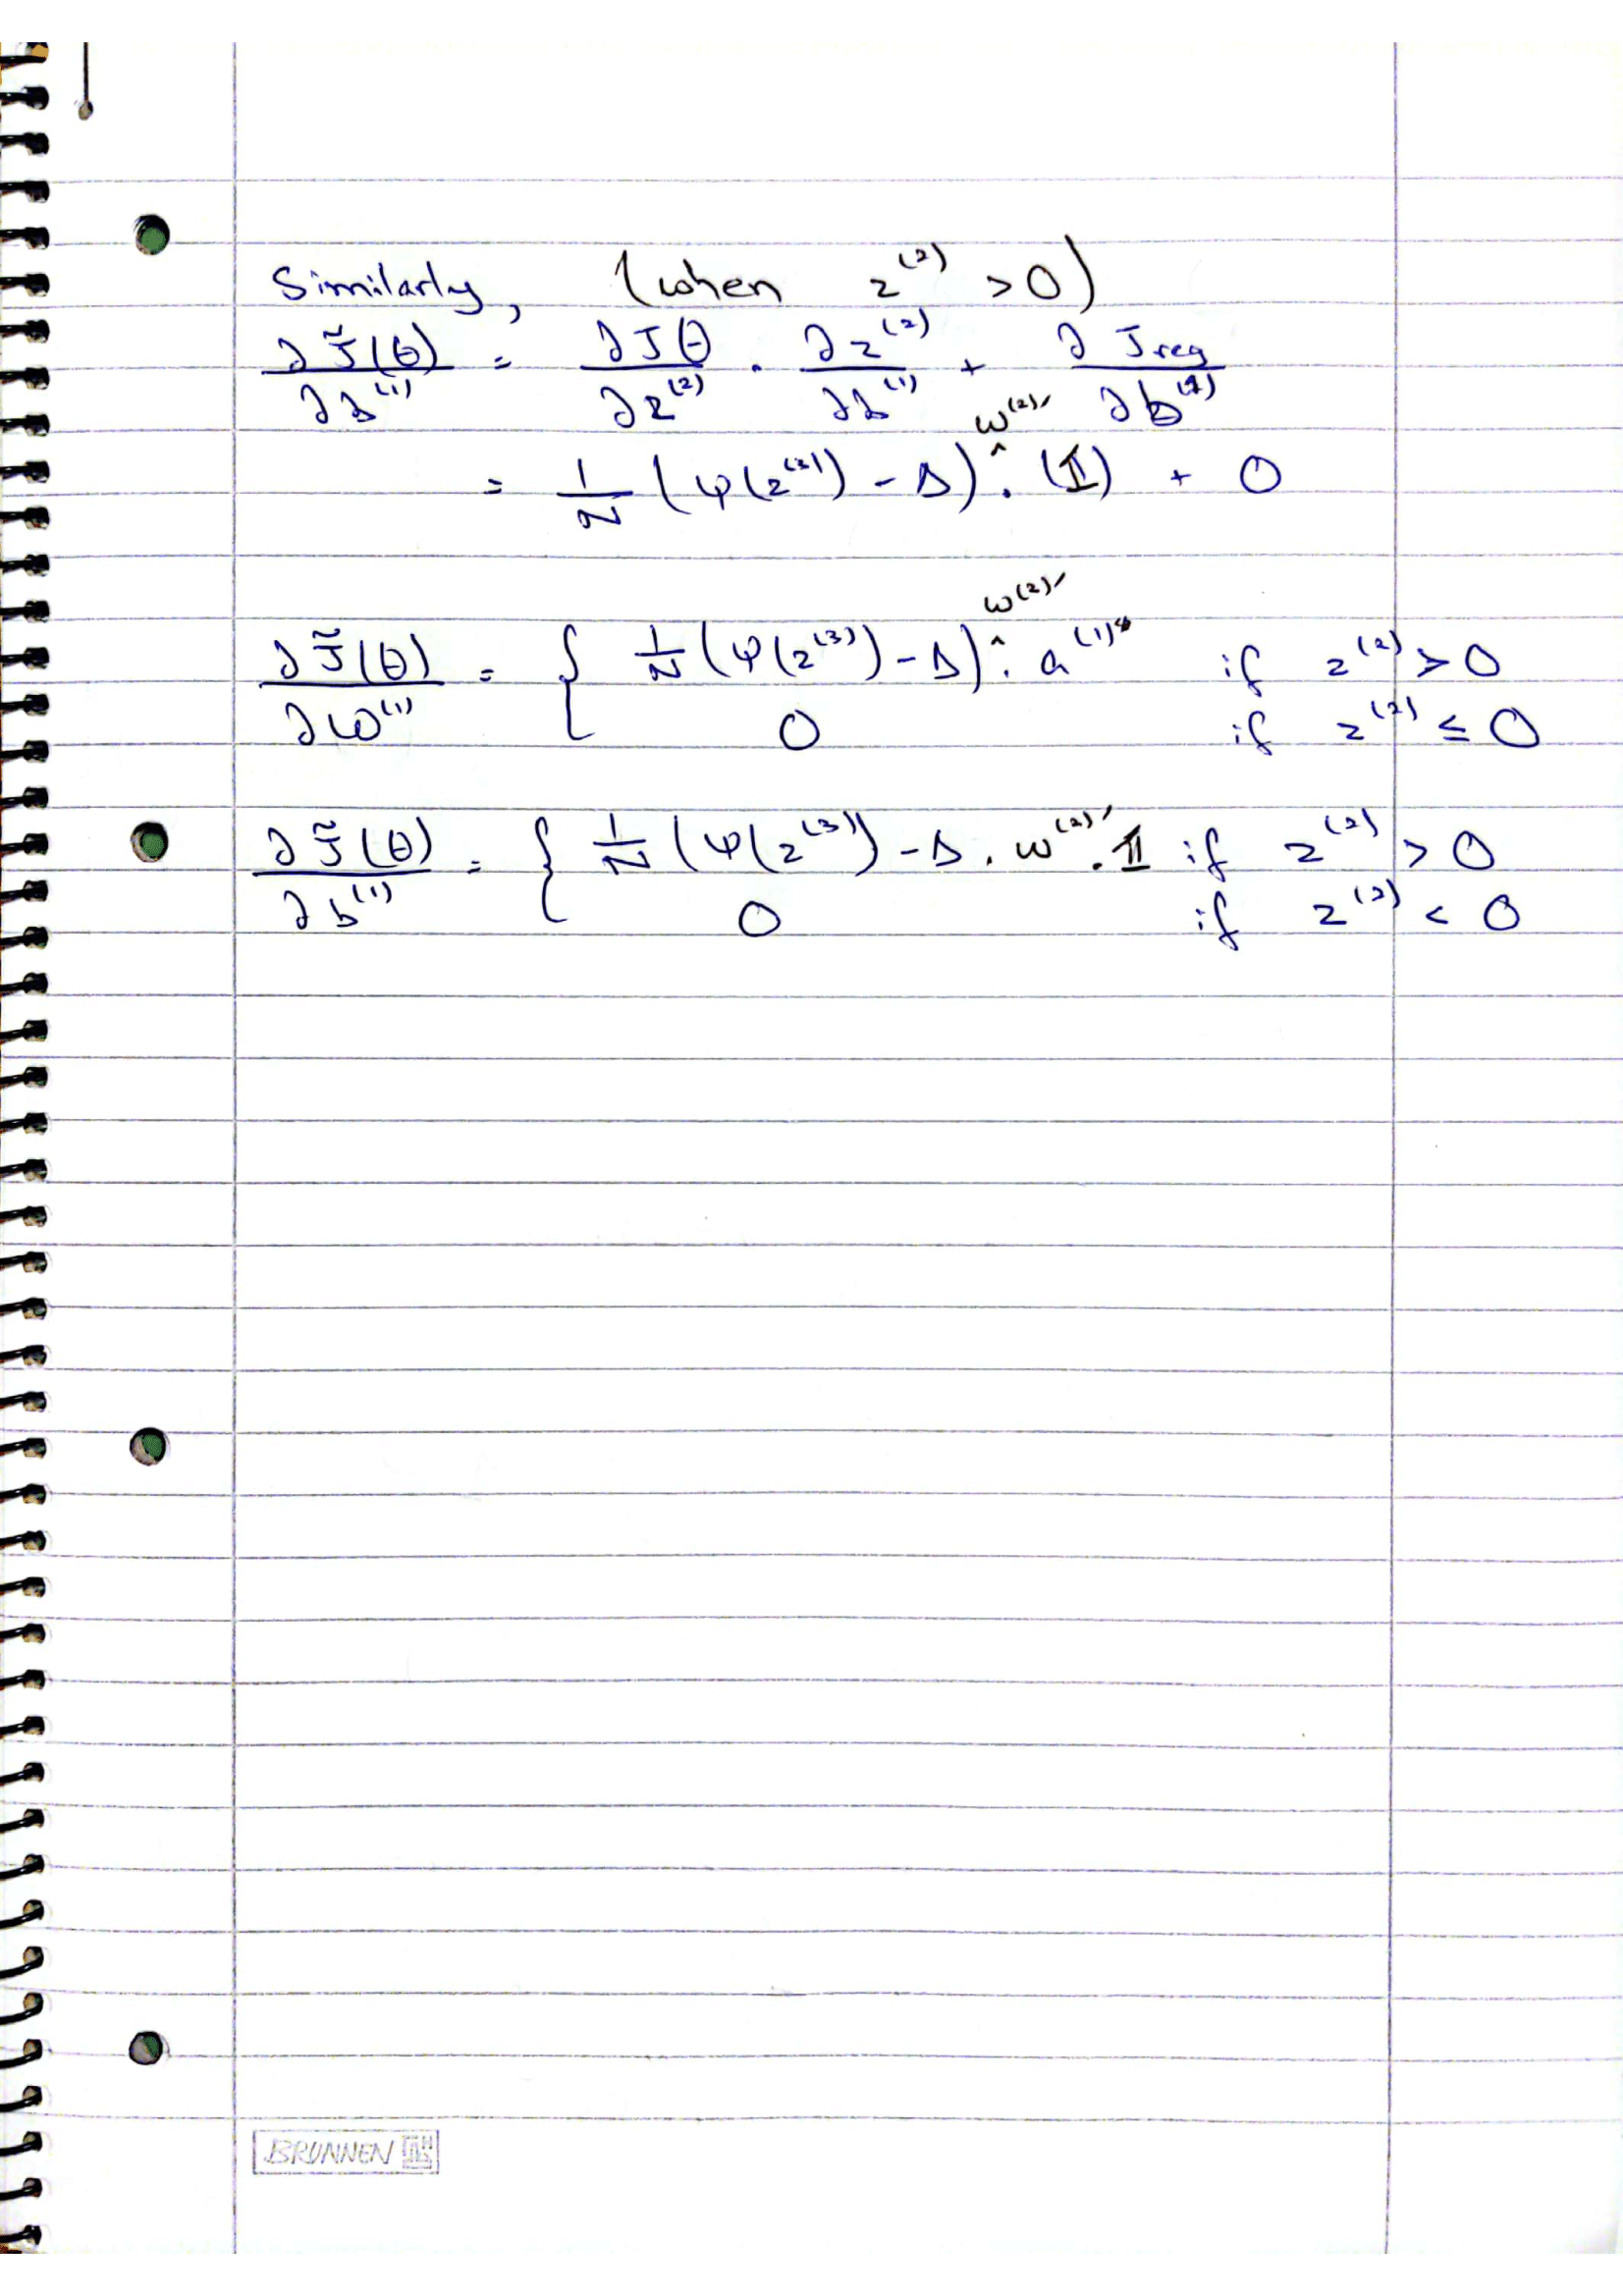 Similarly, (when z⁽²⁾ > 0)
∂J̃(θ)/∂b⁽¹⁾ = ∂Jθ/∂z⁽²⁾ · ∂z⁽²⁾/∂b⁽¹⁾ + ∂Jreg/∂b⁽¹⁾
= 1/N (ψ(z⁽³⁾) - Δ) ^ w⁽²⁾′ · (𝟙) + 0
∂J̃(θ)/∂w⁽¹⁾ = { 1/N (ψ(z⁽³⁾) - Δ) ^ w⁽²⁾′ · a⁽¹⁾′ if z⁽²⁾ > 0
0 if z⁽²⁾ ≤ 0
∂J̃(θ)/∂b⁽¹⁾ = { 1/N (ψ(z⁽³⁾) - Δ · w⁽²⁾′ · 𝟙 if z⁽²⁾ > 0
0 if z⁽²⁾ < 0
BRUNNEN